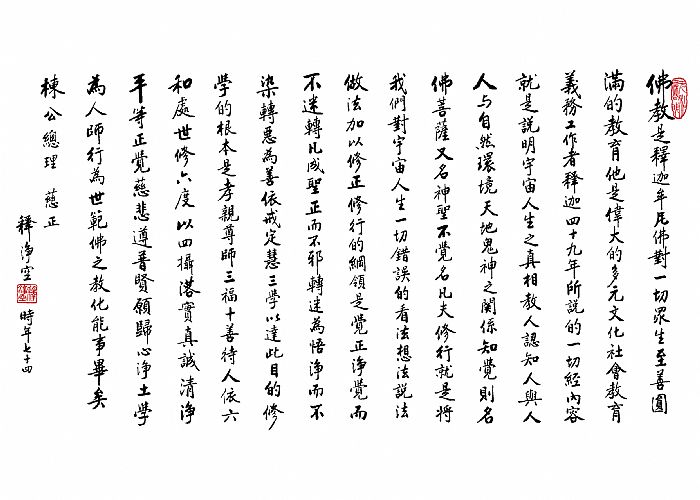 佛教是釋迦牟尼佛對一切眾生至善圓
滿的教育他是偉大的多元文化社會教育
義務工作者釋迦四十九年所說的一切經內容
就是說明宇宙人生之真相教人認知人與人
人与自然環境天地鬼神之関係知覺則名
佛菩薩又名神聖不覺名凡夫修行就是將
我們對宇宙人生一切錯誤的看法想法說法
做法加以修正修行的綱領是覺正淨覺而
不迷轉凡成聖正而不邪轉迷為悟淨而不
染轉惡為善依戒定慧三學以達此目的修
學的根本是孝親尊師三福十善待人依六
和處世修六度以四攝落實真誠清淨
平等正覺慈悲遵普賢願歸心淨土學
為人師行為世範佛之教化能事畢矣
棟公總理 慈正
釋淨空 時年七十四